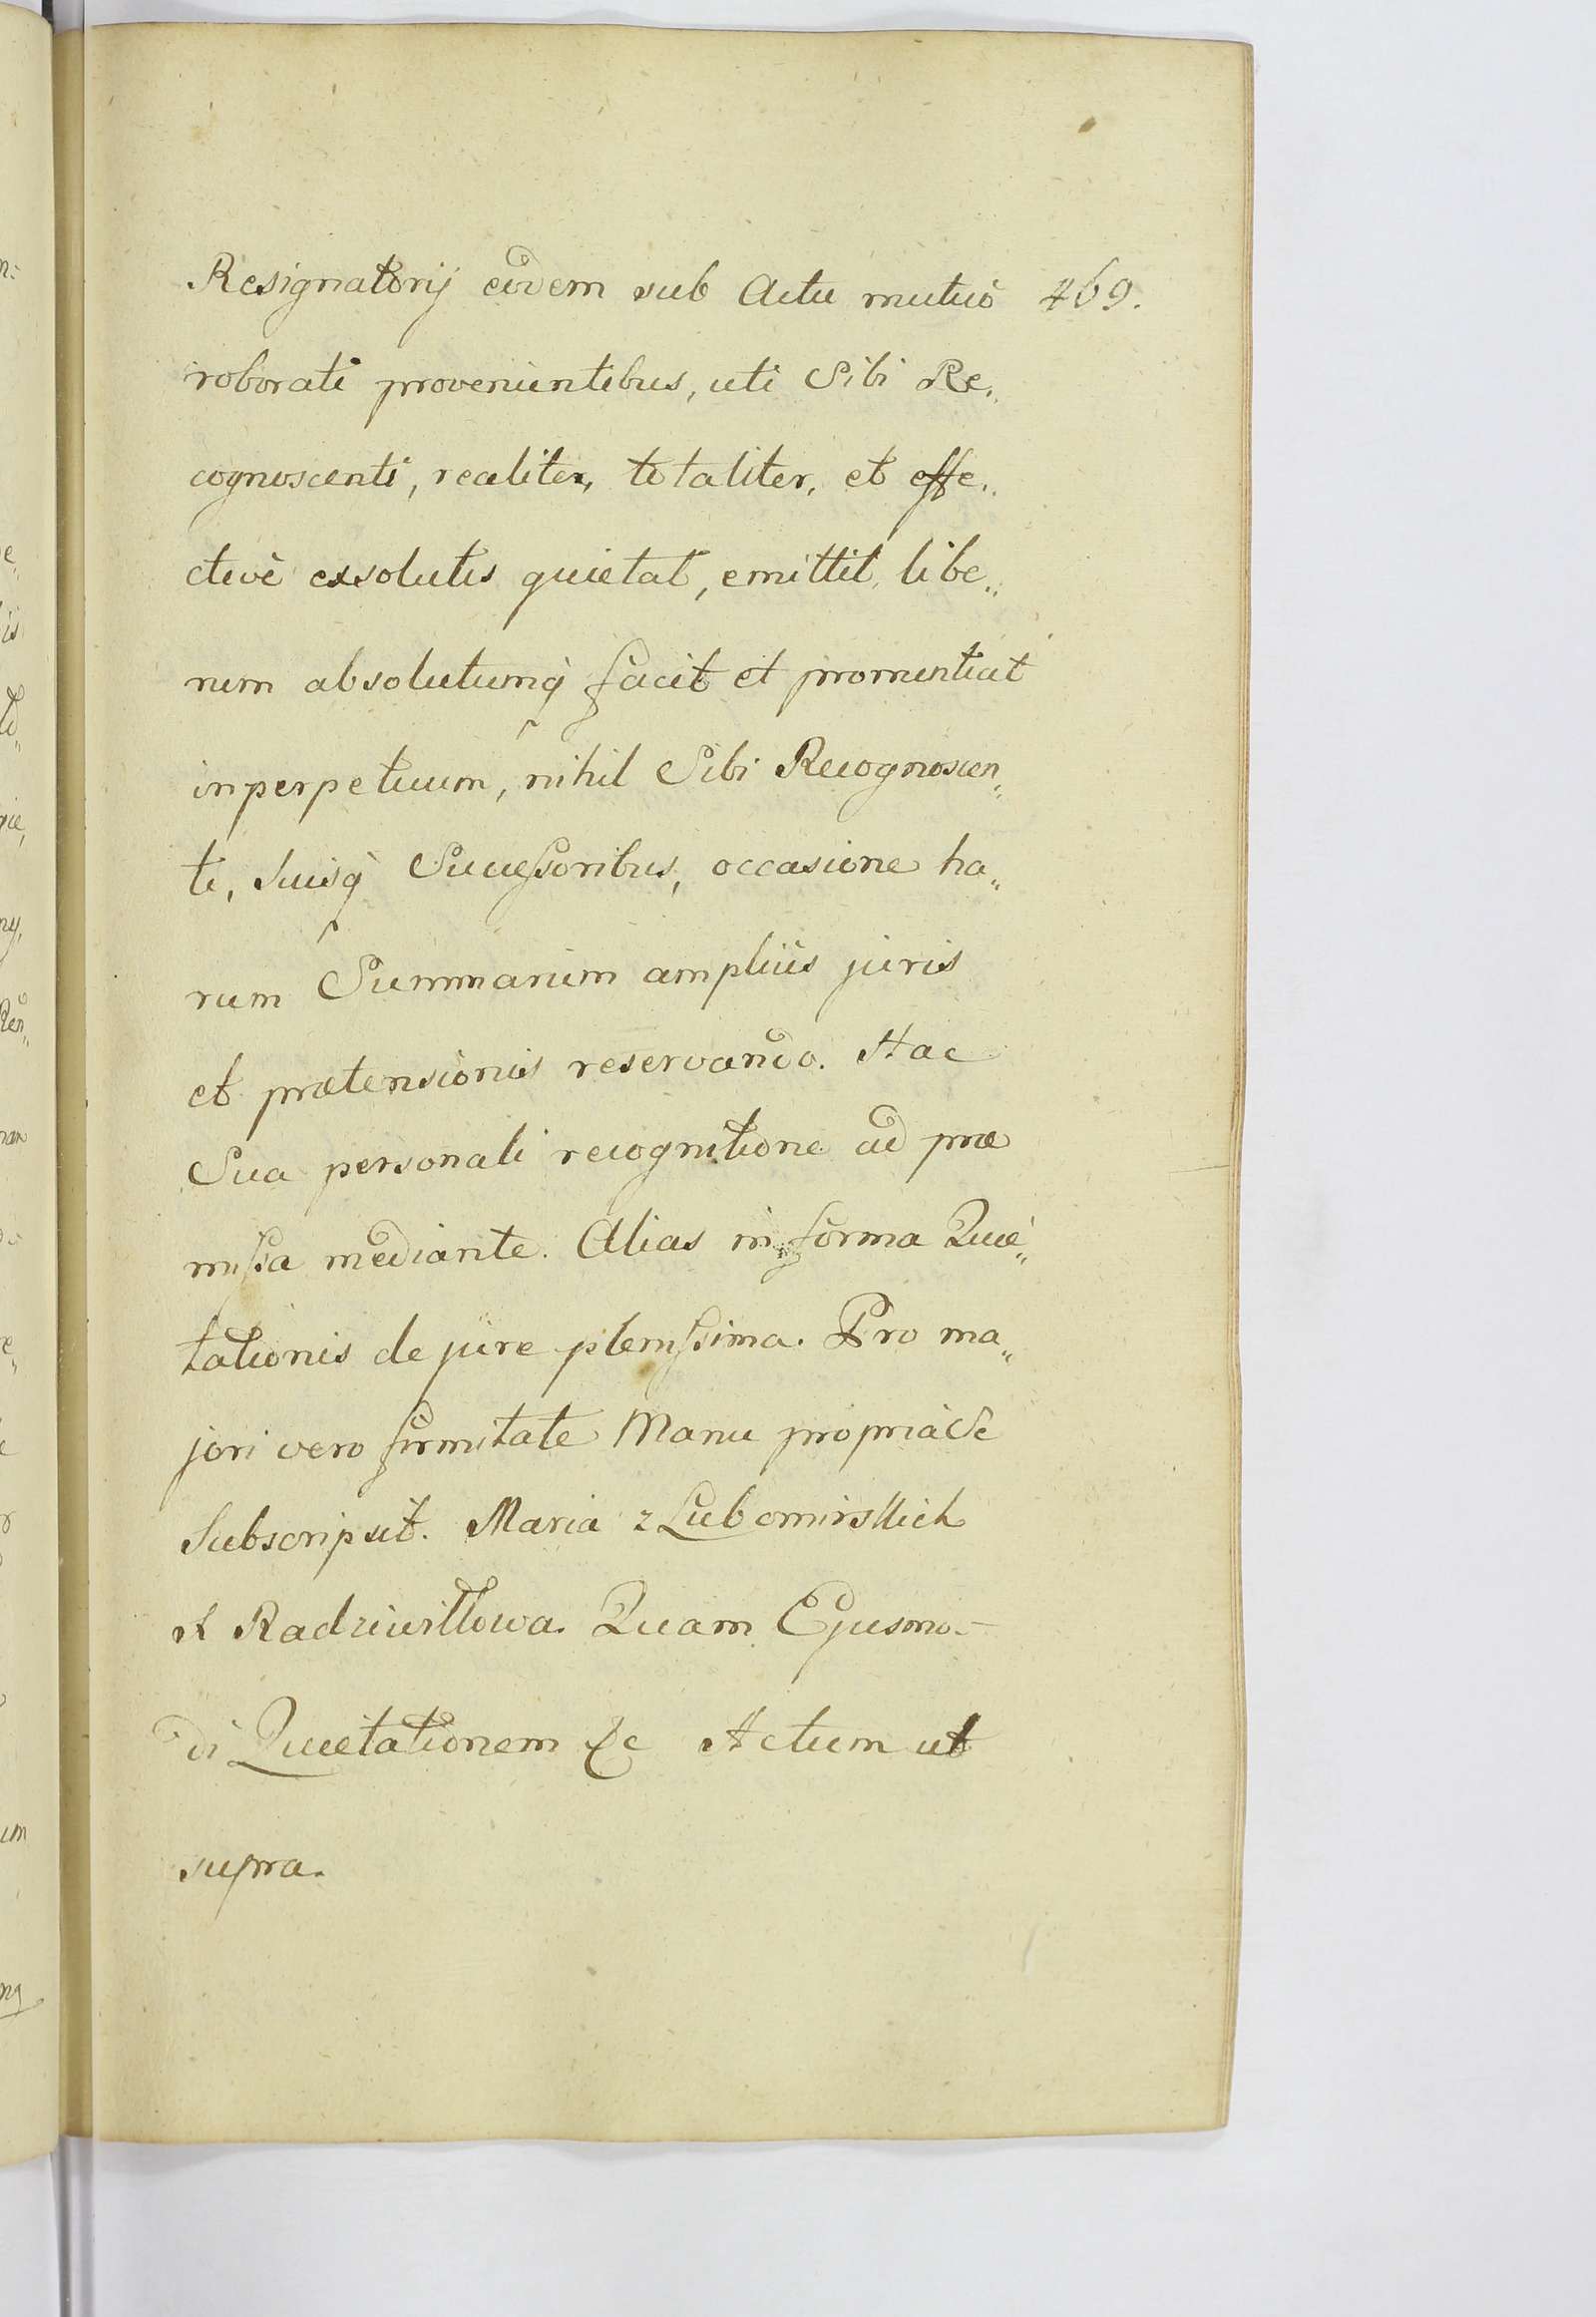 Resignatorij eodem sub Actu mutuò 469.
roborati provenientibus, uti Sibi Re„
cognoscenti, realiter, totaliter, et effe„
ctivè exsolutis quietat, emittit, libe„
rum absolutumq̀ facit et pronuntiat
inperpetuum, nihil Sibi Recognoscen„
ti, Suisq̀ Successoribus, occasione ha„
rum Summarum ampliùs juris
et prætensionis reservando. Hac
Sua personali recognitione ad præ
missa mediante. Alias in forma Quie„
tationis de jure plenissima. Pro ma„
jori vero firmitate Manu propria Se
Subscripsit. Maria z Lubomirskich
X Radziwiłłowa. Quam Ejusmo-
di Quietationem &c Actum ut
supra.